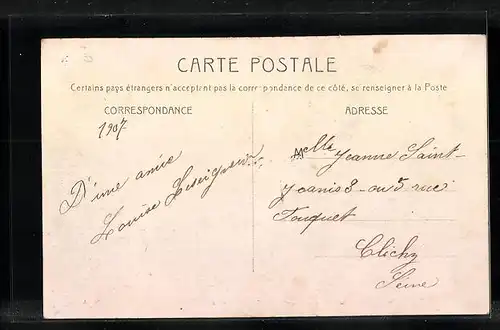 CARTE POSTALE
Certains pays étrangers n'acceptent pas la correspondance de ce côté, se renseigner à la Poste
CORRESPONDANCE
1907
D'une amie
Louise Leseigneur
ADRESSE
Melle Jeanne Saint-
Jeanis 3 ou 5 rue
Fouquet
Clichy
Seine